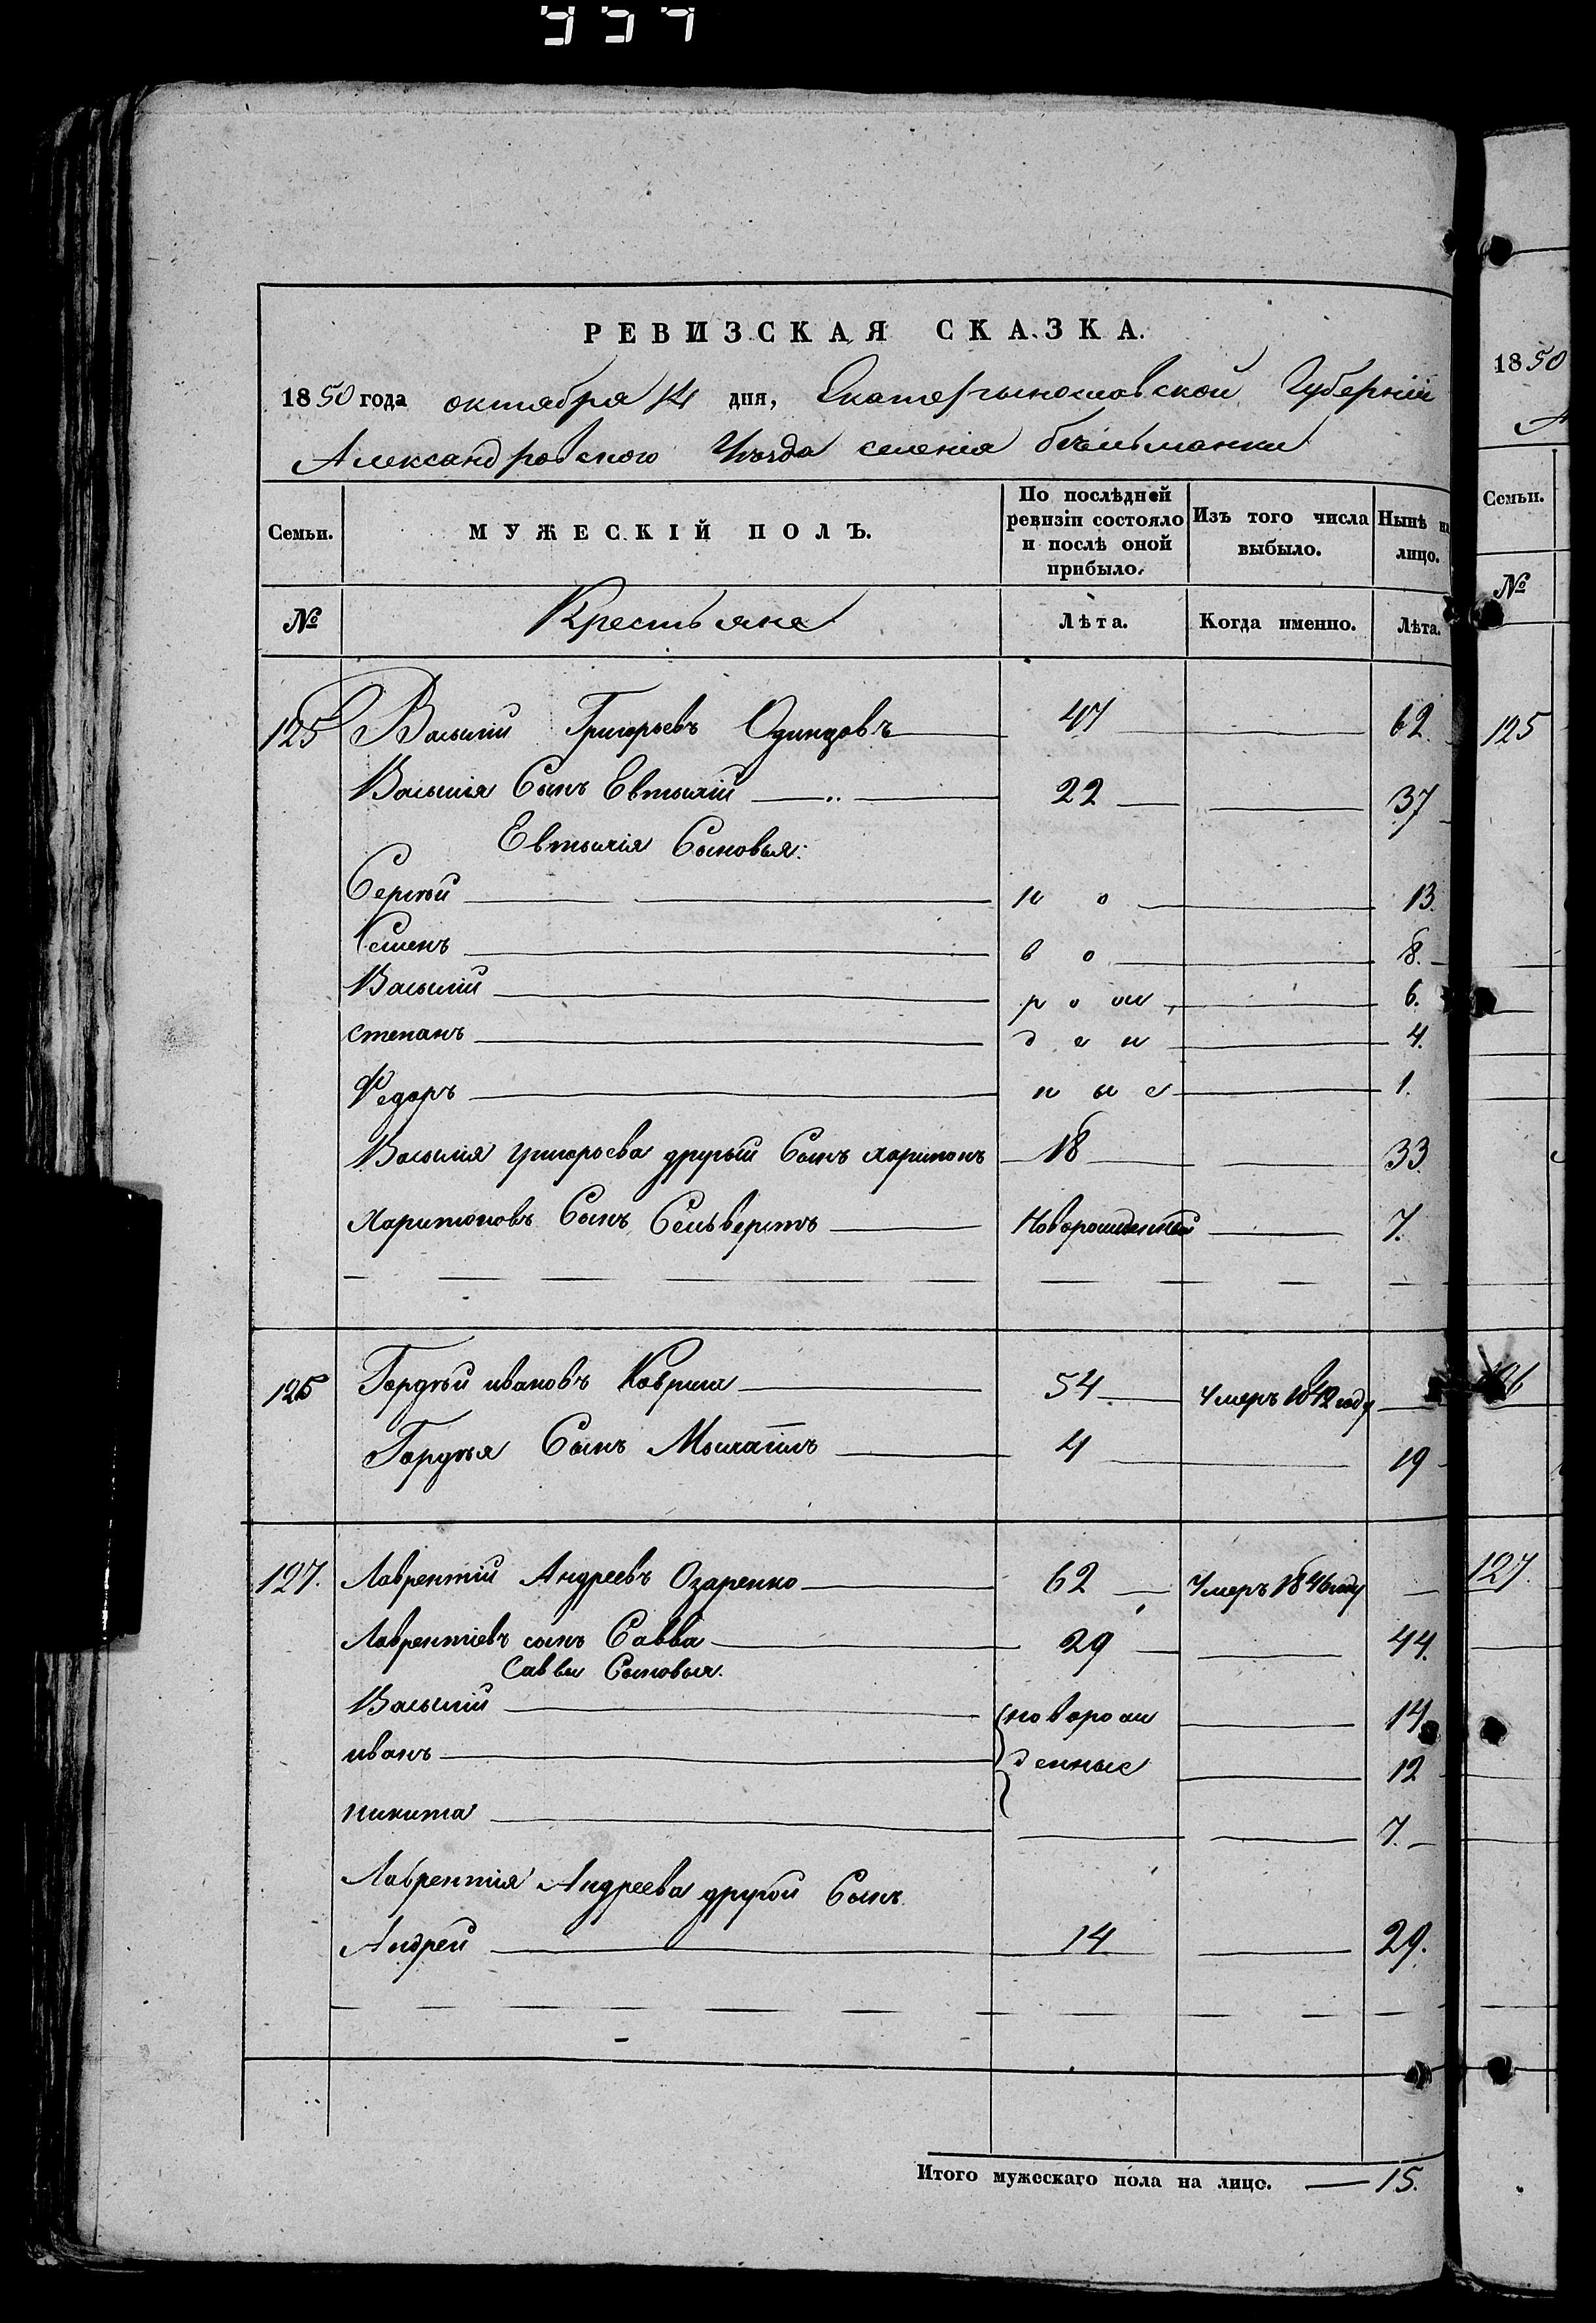 РЕВИЗСКАЯ СКАЗКА.
1850 года октября 14 дня, Екатерынославской Губерніи
Александровского Уѣзда селенія бѣльманки
Семьи. МУЖЕСКІЙ ПОЛЪ. По послѣдней ревизіи состояло и послѣ оной прибыло. Изъ того числа выбыло. Нынѣ на лицо.
№ Крестьяне Лѣта. Когда именно. Лѣта.
125 Василій Григорьевъ Одинцовъ 47 62.
Василія Сынъ Евтихій 22 37
Евтихія Сыновья:
Сергѣй н о 13.
Семенъ в о 8.
Василій р о ж 6.
степанъ д е н 4.
Федоръ н ы е 1.
Василія григорьева другой Сынъ харитонъ 18 33
Харитоновъ Сынъ Сельверстъ Новорожденный 7.
126 Гордѣй ивановъ Коврига 54 Умеръ 1842 году
Гордѣя Сынъ Михаилъ 4 19
127. Лаврентій Андреевъ Озаренко 62 Умеръ 1846 году
Лаврентіевъ сынъ Савва 29 44.
Саввы Сыновья.
Василій новорож 14
иванъ денные 12
никита 7.
Лаврентія Андреева другой Сынъ
Андрей 14 29.
Итого мужескаго пола на лицо. 15.
1850
А
Семьи.
№
125
126
127